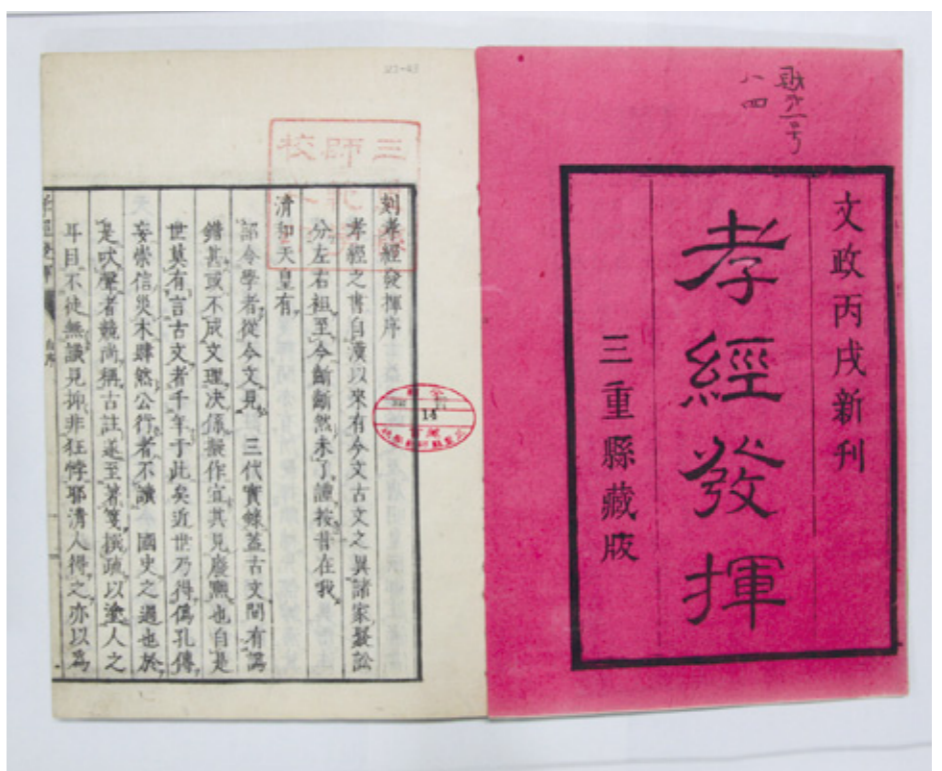 文政丙戌新刊
孝經發揮
三重縣藏版
八四
刻孝經發揮序
孝經之書自漢以來有今文古文之異諸家聚訟
分左右袒至今齗齗然未了謹按昔在我
清和天皇有
詔令學者從今文見 三代實錄蓋古文間有譌
錯甚或不成文理決係擬作宜其見廢黜也自是
世莫有言古文者千年于此矣近世乃得僞孔傳
妄崇信災木肆然公行者不讀 國史之過也於
是吠聲者競尚稱古註遂至著箋撰疏以塗人之
耳目不徒無識見抑非狂悖耶清人得之亦以爲
14